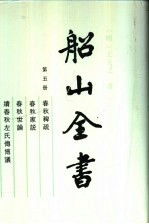 船山全書
第五册
春秋稗疏
春秋家說
春秋世論
續春秋左氏傳博議